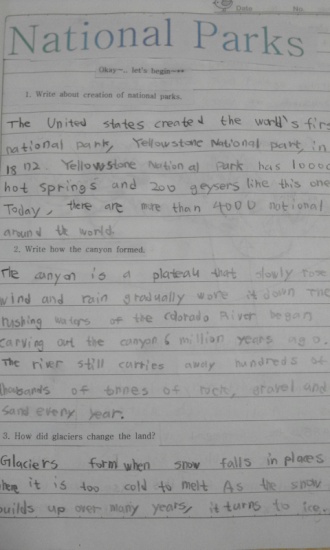 Date No.
National Parks
Okay~.. let's begin~~
1. Write about creation of national parks.
The United states created the world's firs
national park, Yellowstone National park, in
1872. Yellowstone National park has 10000
hot springs and 200 geysers like this one
Today, there are more than 4000 national
around the world.
2. Write how the canyon formed.
The canyon is a plateau that slowly rose
wind and rain gradually wore it down The
rushing waters of the Colorado River began
carving out the canyon 6 million years ago.
The river still carries away hundreds of
of tonnes of rock, gravel and
sand every year.
3. How did glaciers change the land?
Glaciers form when snow falls in places
where it is too cold to melt As the snow
builds up over many years, it turns to ice.